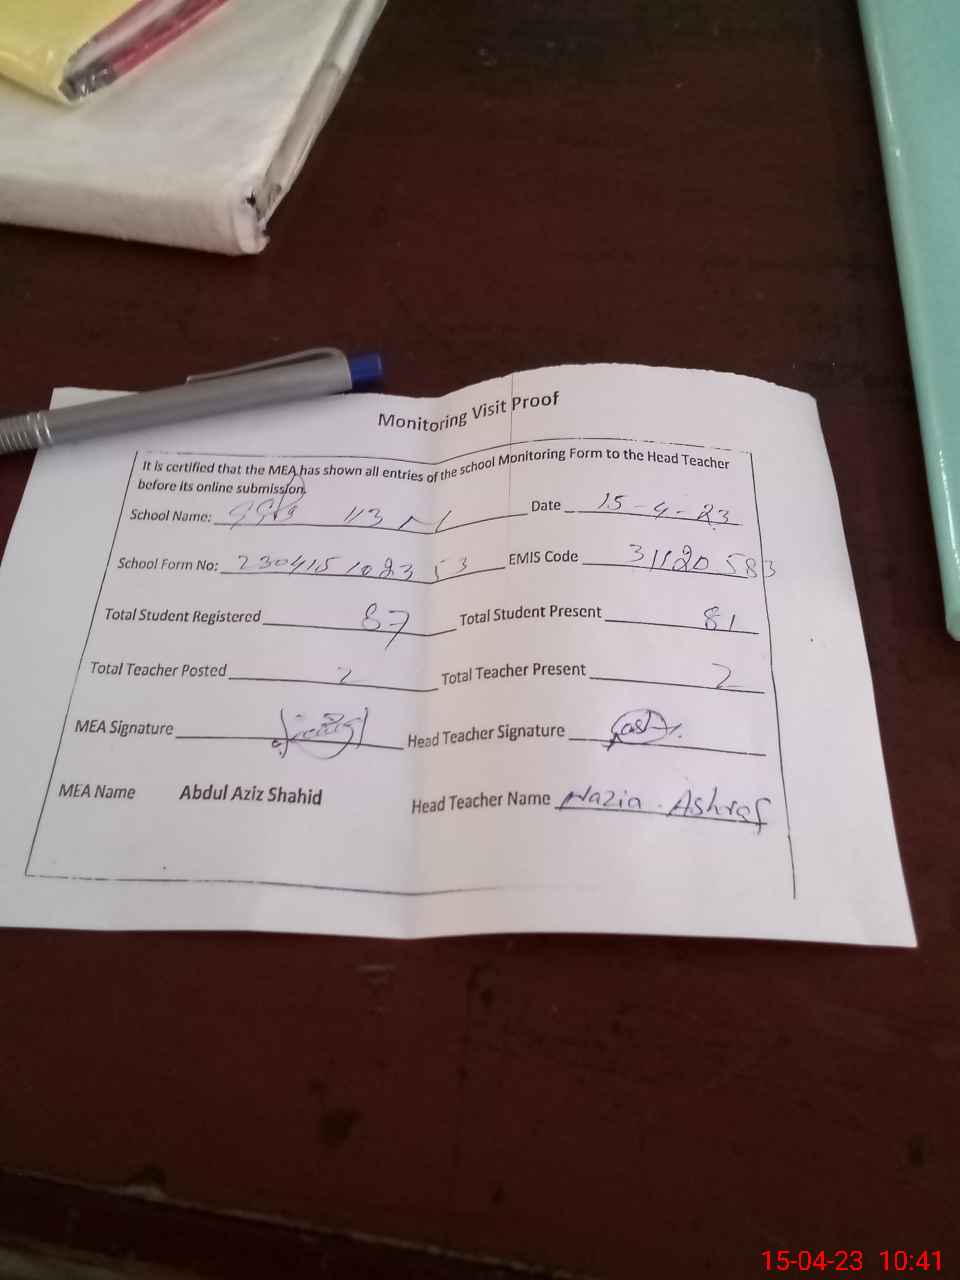 Monitoring Visit Proof
It is certified that the MEA has shown all entries of the school Monitoring Form to the Head Teacher
before its online submission.
School Name: GGPS 113 Date 15-4-23
School Form No: 230415102353 EMIS Code 31120583
Total Student Registered 87 Total Student Present 81
Total Teacher Posted 2 Total Teacher Present 2
MEA Signature Head Teacher Signature
MEA Name Abdul Aziz Shahid Head Teacher Name Nazia Ashraf
15-04-23 10:41